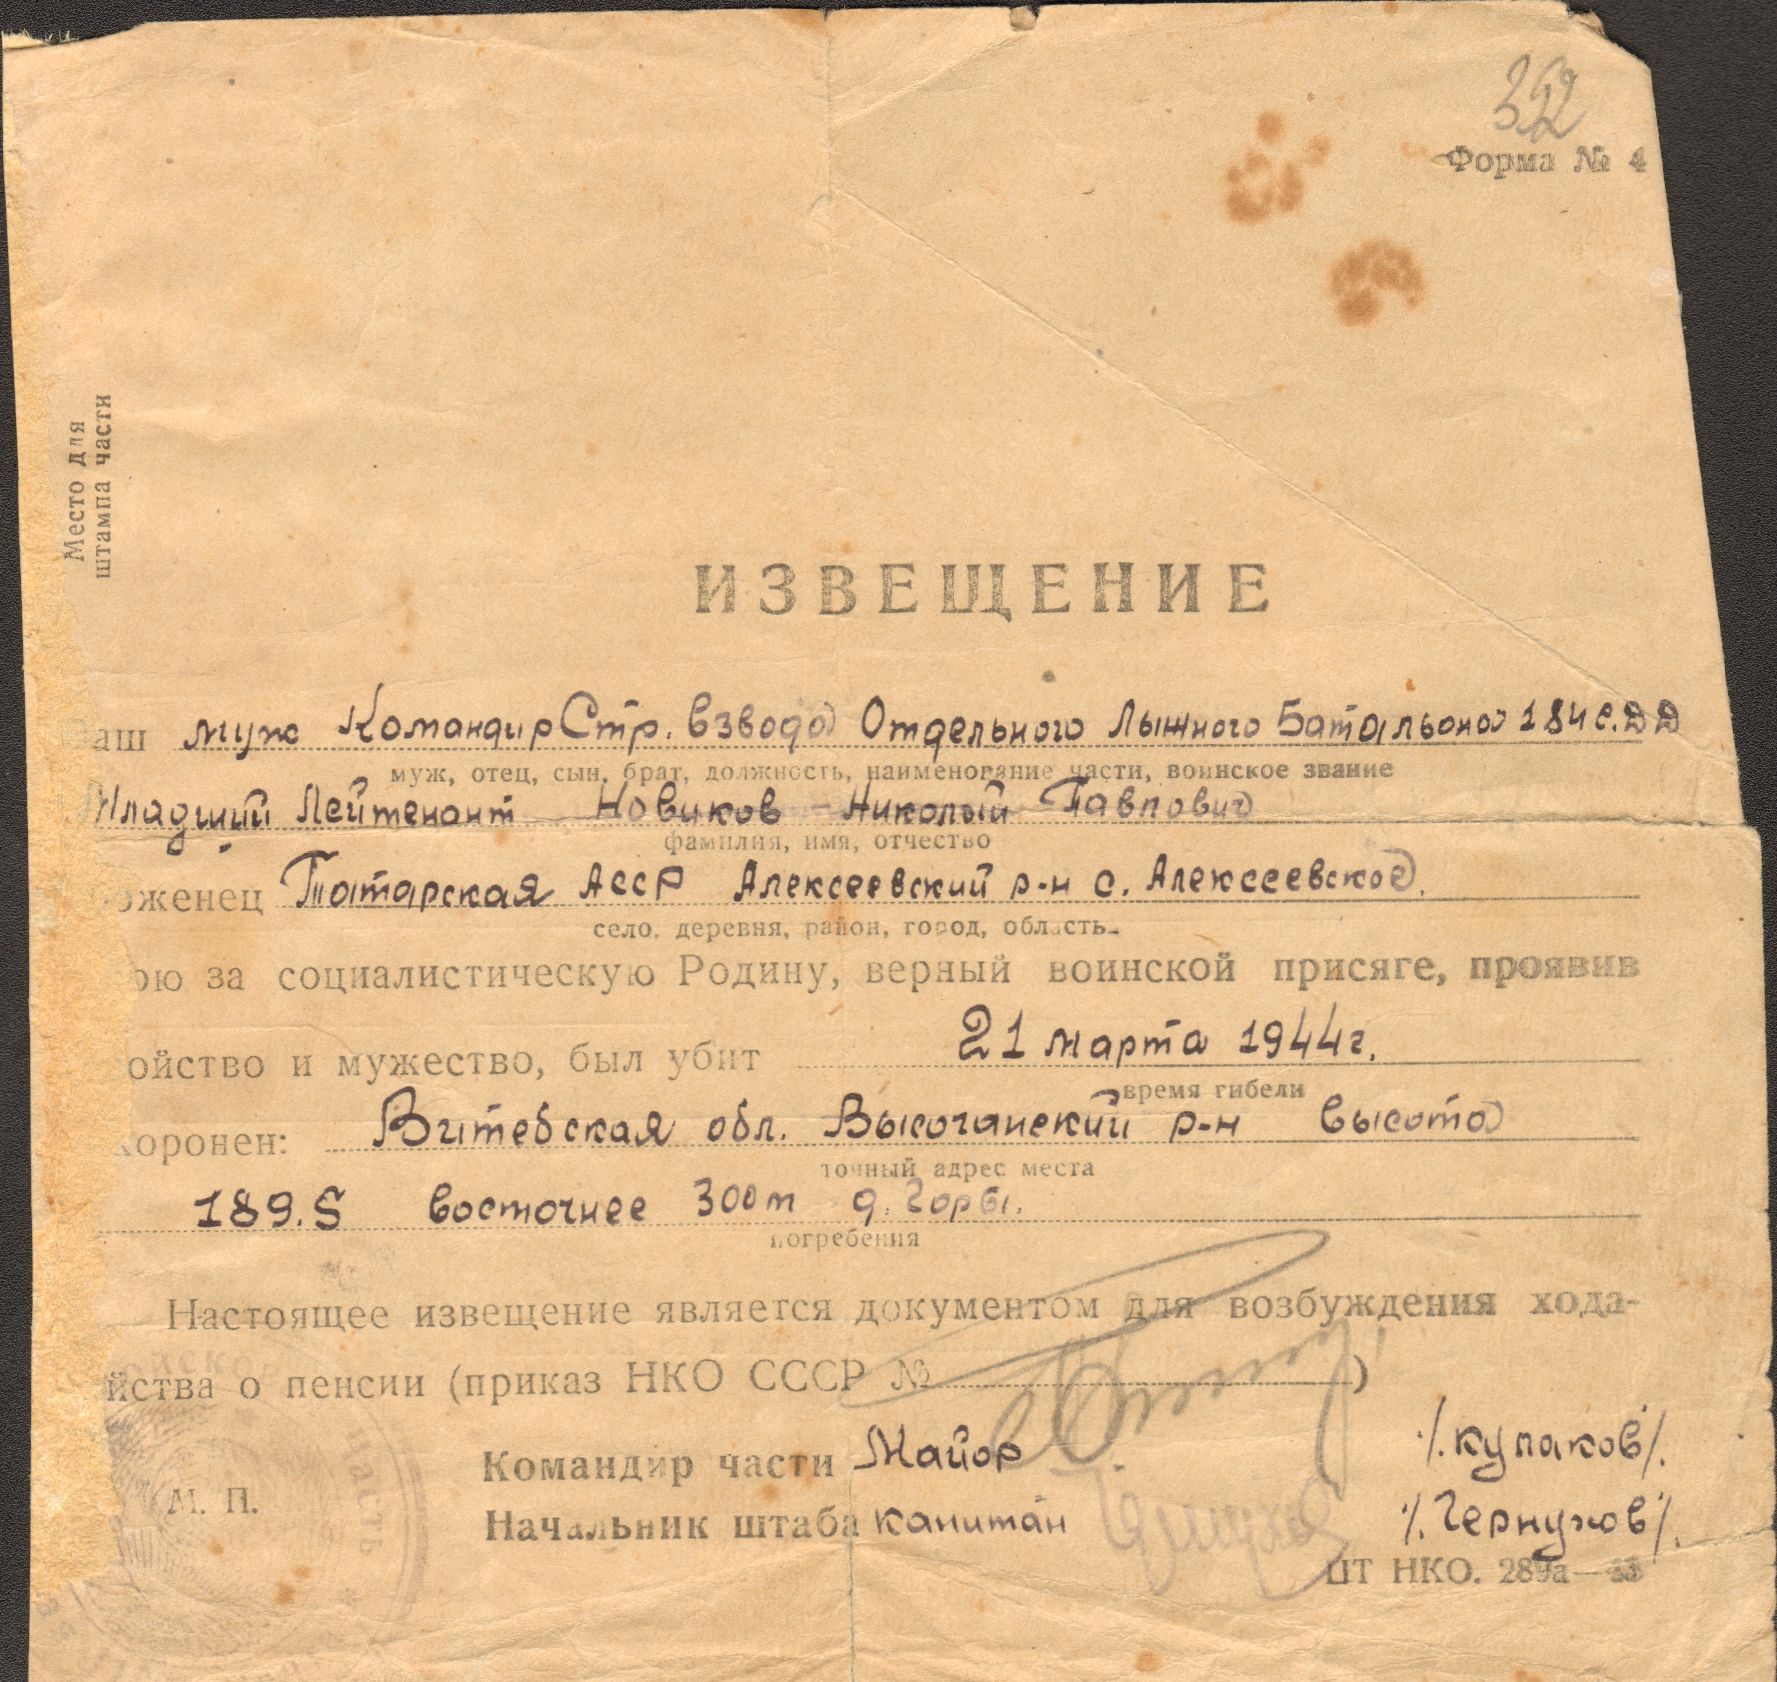 352
Форма № 4
Место для
штампа части
ИЗВЕЩЕНИЕ
аш муж Командир Стр. взвода Отдельного Лыжного Батальона 184 С.Д.Д
муж, отец, сын, брат, должность, наименование части, воинское звание
Младший Лейтенант Новиков Николай Павлович
фамилия, имя, отчество
оженец Татарская АССР Алексеевский р-н с. Алексеевское.
село, деревня, район, город, область.
ою за социалистическую Родину, верный воинской присяге, проявив
ойство и мужество, был убит 21 марта 1944г.
время гибели
коронен: Витебская обл. Высочанский р-н высота
точный адрес места
189.5 восточнее 300м д. Горбы.
погребения
Настоящее извещение является документом для возбуждения хода-
йства о пенсии (приказ НКО СССР № )
Командир части Майор /Кулаков/.
М. П.
Начальник штаба капитан /Чернухов/.
ЦТ НКО. 289а—43
часть